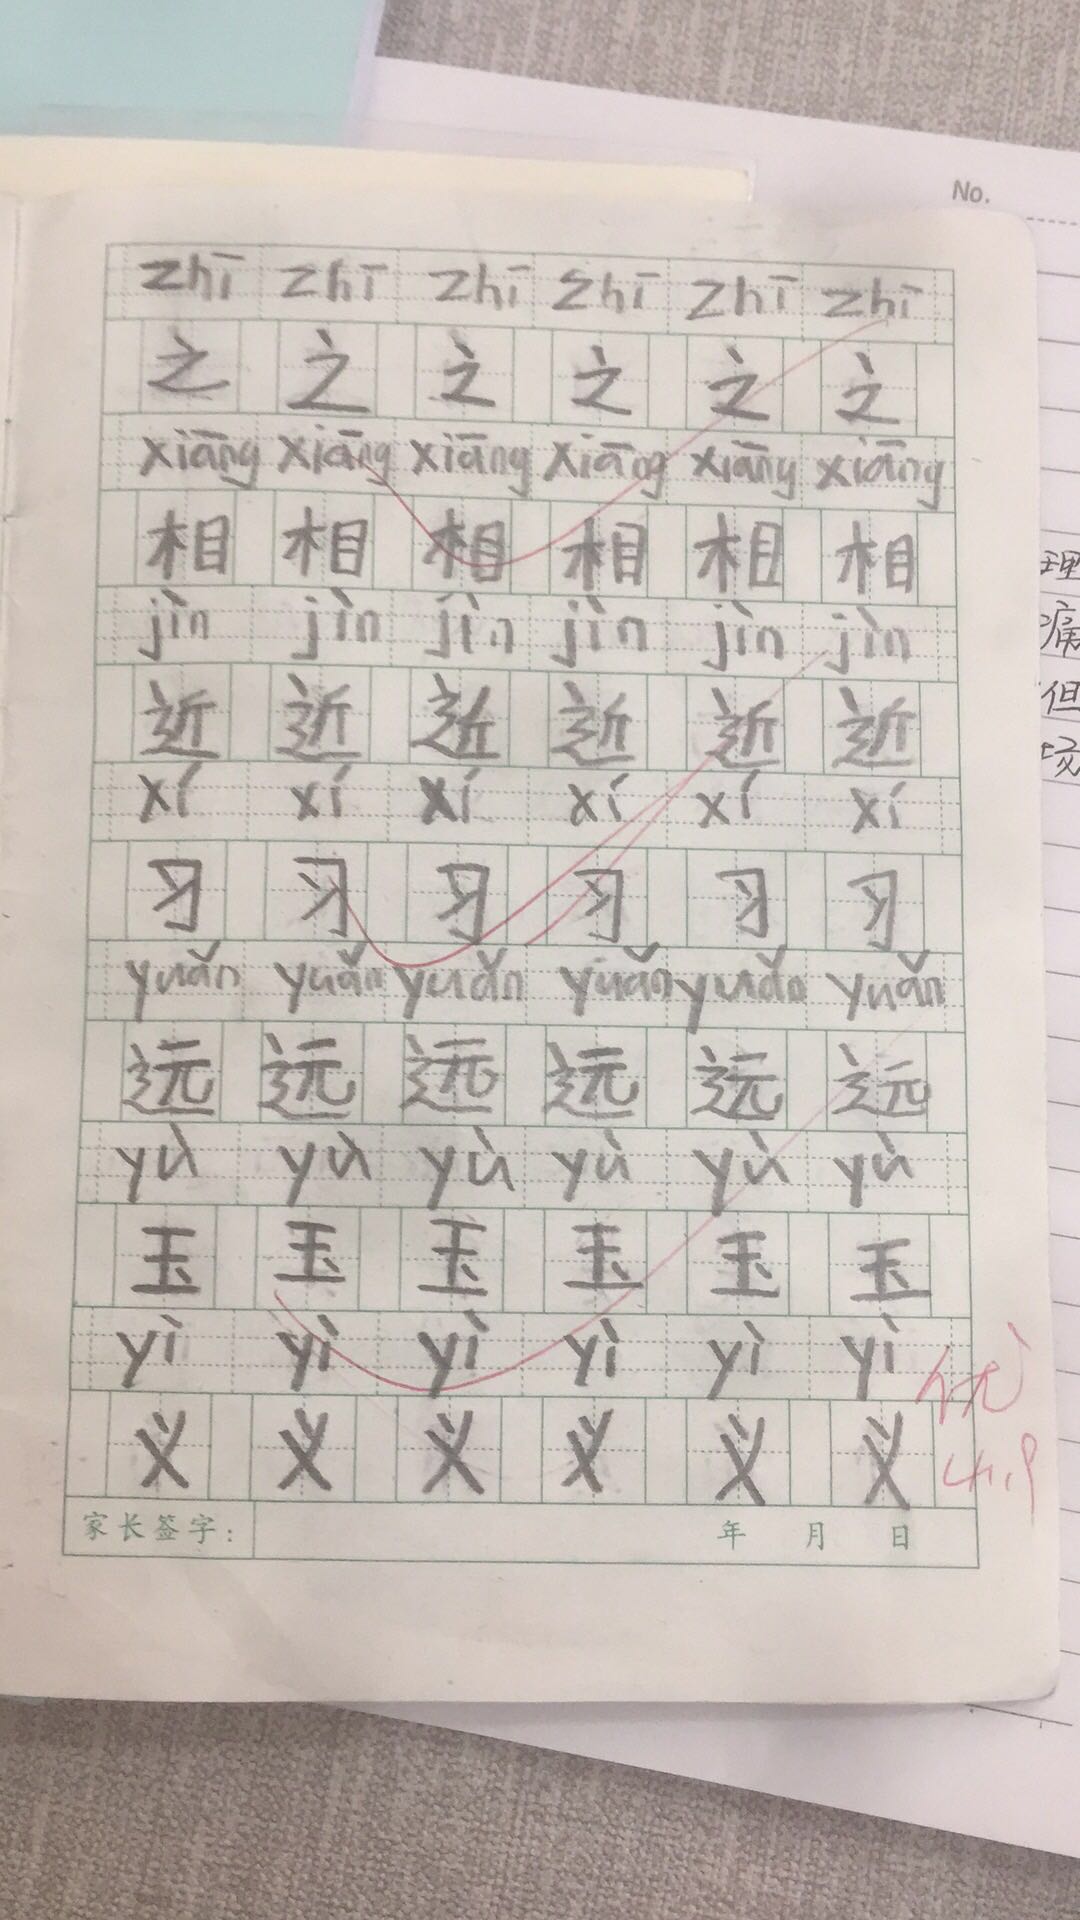 No.
zhī zhī zhī zhī zhī zhī
之 之 之 之 之 之
xiāng xiāng xiāng xiāng xiāng xiāng
相 相 相 相 相 相
jìn jìn jìn jìn jìn jìn
近 近 近 近 近 近
xí xí xí xí xí xí
习 习 习 习 习 习
yuǎn yuǎn yuǎn yuǎn yuǎn yuǎn
远 远 远 远 远 远
yù yù yù yù yù yù
玉 玉 玉 玉 玉 玉
yì yì yì yì yì yì
义 义 义 义 义 义
优
家长签字: 年 月 日
理
痛
但